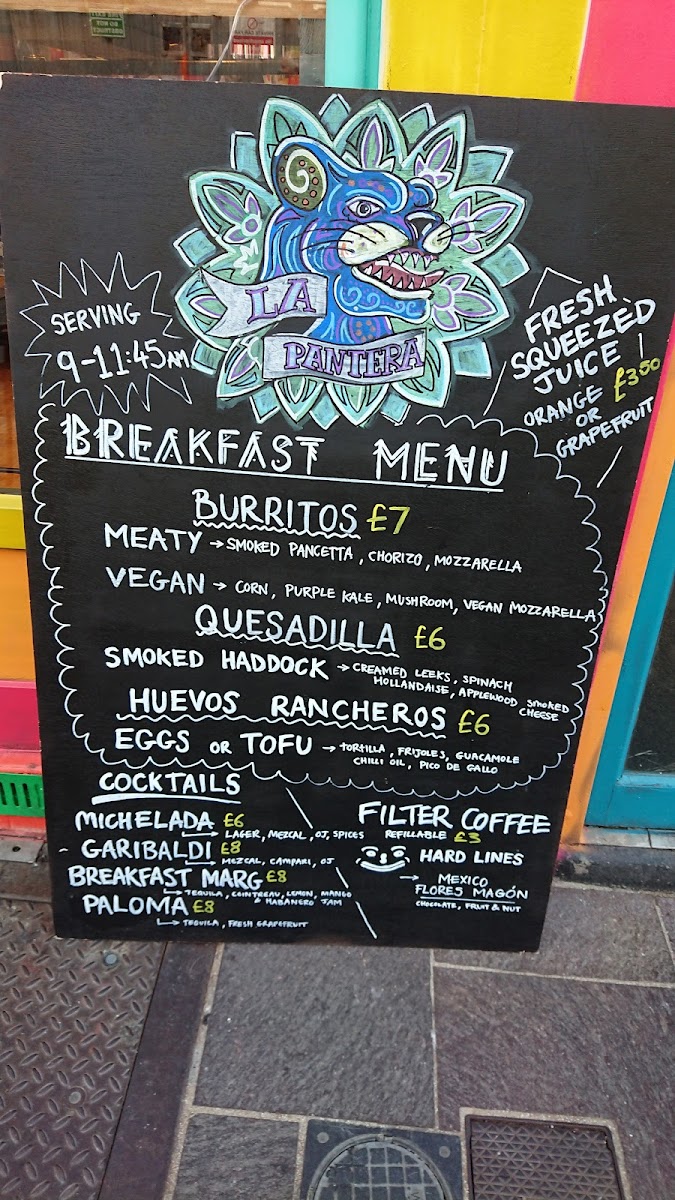 LA
PANTERA
SERVING
9-11:45AM
FRESH
SQUEEZED
JUICE
£3.50
ORANGE
OR
GRAPEFRUIT
BREAKFAST MENU
BURRITOS £7
MEATY → SMOKED PANCETTA, CHORIZO, MOZZARELLA
VEGAN → CORN, PURPLE KALE, MUSHROOM, VEGAN MOZZARELLA
QUESADILLA £6
SMOKED HADDOCK → CREAMED LEEKS, SPINACH
HOLLANDAISE, APPLEWOOD SMOKED
CHEESE
HUEVOS RANCHEROS £6
EGGS OR TOFU → TORTILLA, FRIJOLES, GUACAMOLE
CHILLI OIL, PICO DE GALLO
COCKTAILS
MICHELADA £6
LAGER, MEZCAL, OJ, SPICES
GARIBALDI £8
MEZCAL, CAMPARI, OJ
BREAKFAST MARG £8
TEQUILA, COINTREAU, LEMON, MANGO
& HABANERO JAM
PALOMA £8
TEQUILA, FRESH GRAPEFRUIT
FILTER COFFEE
REFILLABLE £3
HARD LINES
→ MEXICO
FLORES MAGÓN
CHOCOLATE, FRUIT & NUT